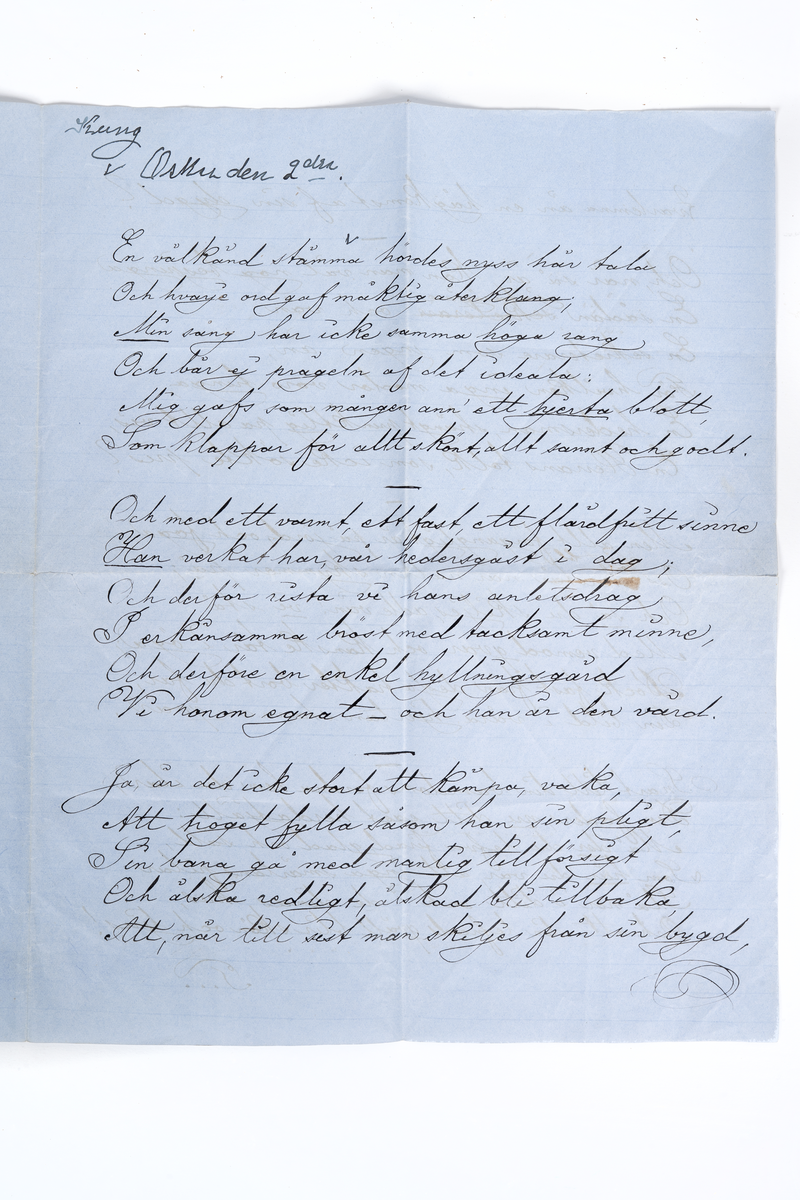 Kung
v Oskar den 2dra.
v
En välkänd stämma hördes nyss här tala
Och hvarje ord gaf mäktig återklang;
Min sång har icke samma höga rang
Och bär ej prägeln af det ideala:
Mig gafs som mången ann' ett hjerta blott,
Som klappar för allt skönt, allt sannt och godt.
Och med ett varmt, ett fast, ett flärdfritt sinne
Han verkat har, vår hedersgäst i dag;
Och derför rista vi hans anletsdrag
I erkänsamma bröst med tacksamt minne,
Och derföre en enkel hyllningsgärd
Vi honom egnat – och han är den värd.
Ja, är det icke stort att kämpa, vaka,
Att troget fylla såsom han sin pligt,
Sin bana gå med mantlig tillförsigt
Och älska redligt, älskad bli tillbaka,
Att, när till sist man skiljes från sin bygd,